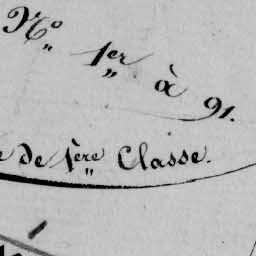 No 1er à 91.
de 1ère Classe.